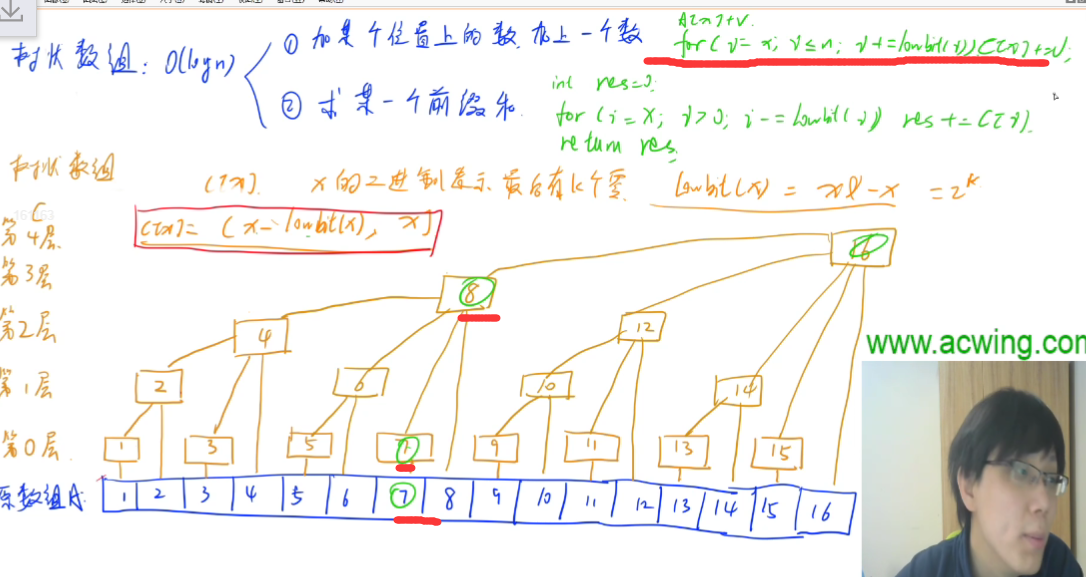 树状数组: O(logn)
① 加某个位置上的数, 加上一个数
② 求某一个前缀和.
A[x]+v.
for(i=x; i≤n; i+=lowbit(i)) C[i]+=v;
int res=0;
for(i=x; i>0; i-=lowbit(i)) res+=C[i].
return res.
树状数组
C[x]. x的二进制表示最后有k个零. lowbit(x) = x&-x = 2^k
C
C[x]= (x-lowbit(x), x]
第4层
第3层
第2层
第1层
第0层
16
8
4
12
2
6
10
14
1 3 5 7 9 11 13 15
原数组A:
1 2 3 4 5 6 7 8 9 10 11 12 13 14 15 16
www.acwing.com